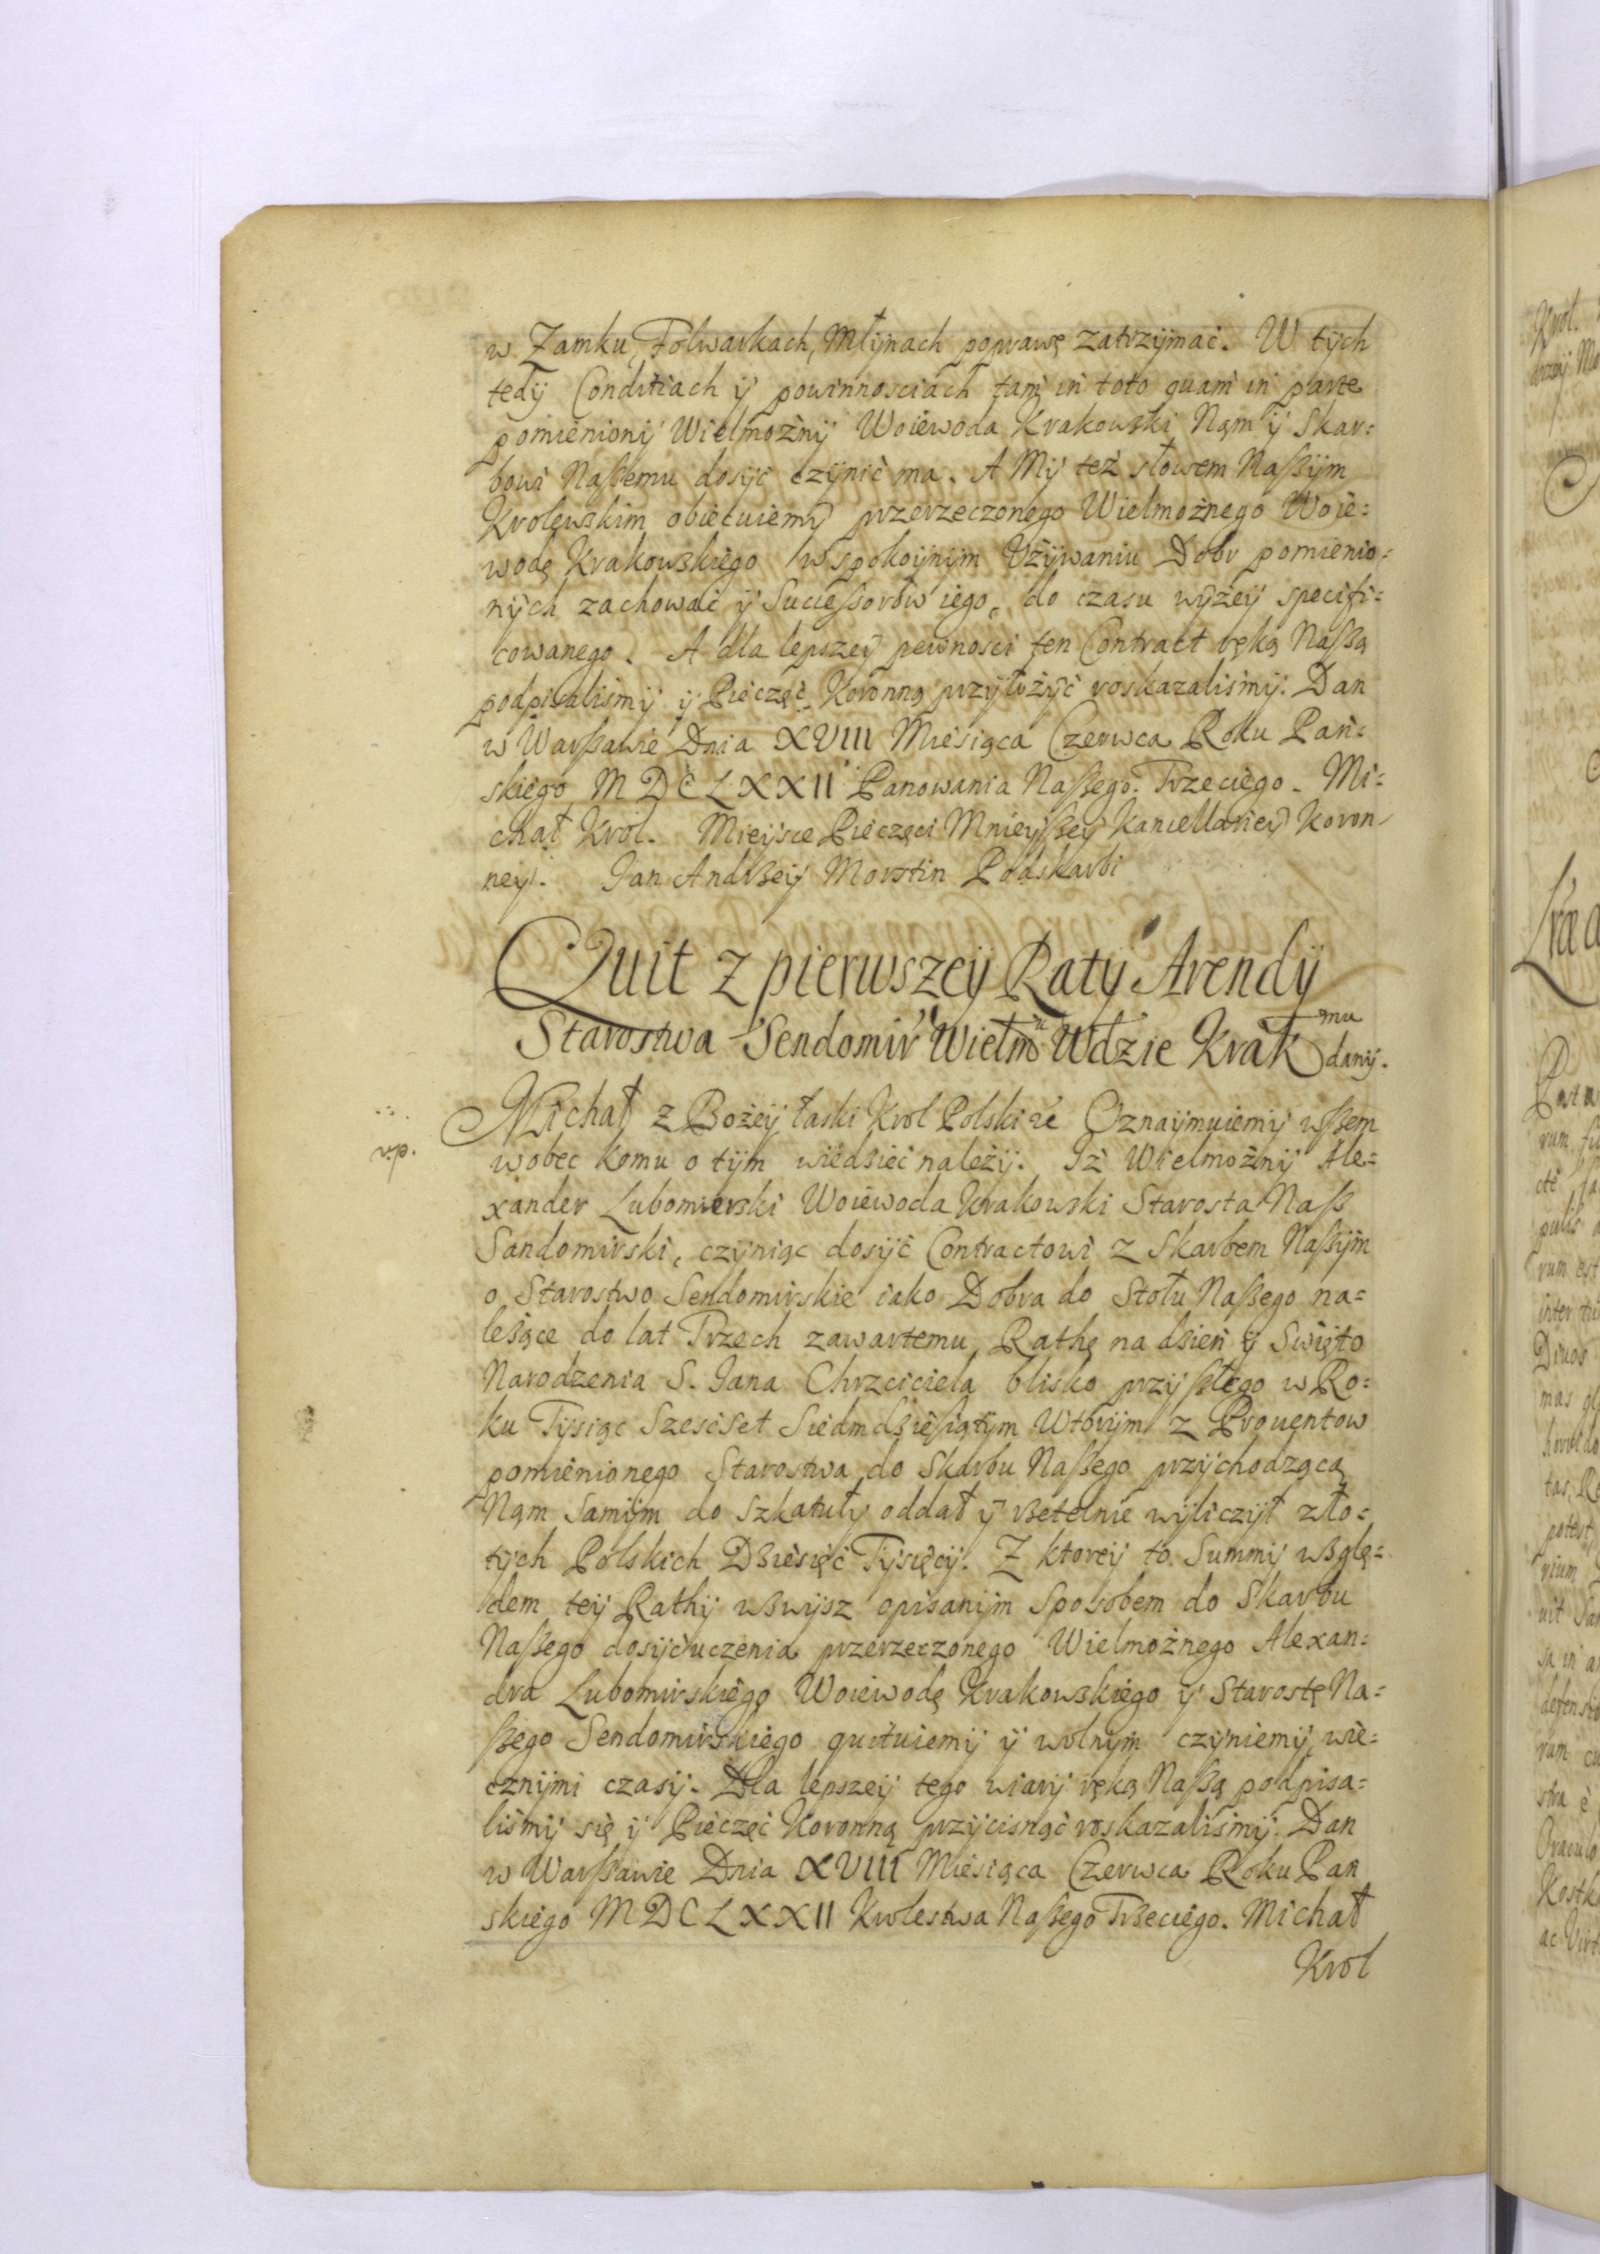 w Zamku, Folwarkach, Młÿnach poprawę zatrzÿmać. W tÿch
tedÿ Conditiach ÿ powinnosciach tam in toto quam in parte
pomienionÿ Wielmożnÿ Woiewoda Krakowski Nąm ÿ Skar=
bowi Naßemu dosÿć czÿnić ma. A Mÿ też słowem Naßÿm
Krolewskim obiecuiemÿ przerzeczonego Wielmożnego Woie=
wodę Krakowskiego w spokoÿnÿm Vżÿwaniu Dobr pomienio=
nÿch zachować ÿ Sucießorow iego, do czasu wÿżeÿ specifi=
cowanego. A dla lepszeÿ pewnosci ten Contract ręką Naßą
podpisalismÿ ÿ Pieczęć Koronną przÿłożÿć roskazalismÿ. Dan
w Warßawie Dnia XVIII Miesiąca Czerwca Roku Pań=
skiego MDCLXXII Panowania Naßego Trzeciego. Mi=
chał Krol. Mieÿsce Pieczęci Mnieÿßeÿ Kancellarieÿ Koron
neÿ. Jan Andrzeÿ Morstin Podskarbi
Quit z pierwszeÿ Ratÿ Arendÿ
Starostwa Sendomir Wielm̃u Wdzie Krak mu danÿ.
Michał z Bożeÿ łaski Krol Polski &c Oznaÿmuiemÿ wßem
wobec komu o tÿm wiedzieć należÿ. Iż Wielmożnÿ Ale=
xander Lubomierski Woiewoda Krakowski Starosta Naß
Sandomirski, czÿniąc dosÿć Contractowi z Skarbem Naßÿm
o Starostwo Sendomirskie iako Dobra do Stołu Naßego na=
leżące do lat Trzech zawartemu, Rathę na dzień ÿ Swięto
Narodzenia S. Jana Chrzciciela blisko przÿßłego w Ro=
ku Tÿsiąc Szescset Siedmdziesiątÿm Wtorÿm z Prouentow
pomienionego Starostwa do Skarbu Naßego przÿchodzącą
Nąm samÿm do szkatułÿ oddał ÿ rzetelnie wÿliczÿł zło=
tÿch Polskich Dziesięć Tÿsięcÿ. Z ktoreÿ to Summÿ wzglę=
dem teÿ Rathÿ wzwÿsz opisanÿm sposobem do Skarbu
Naßego dosÿć uczenia przerzeczonego Wielmożnego Alexan=
dra Lubomirskiego Woiewodę Krakowskiego ÿ Starostę Na=
ßego Sendomirskiego quituiemÿ ÿ wolnÿm czÿniemÿ wie=
cznÿmi czasÿ. Dla lepszeÿ tego wiarÿ ręką Naßą podpisa=
lismÿ się ÿ Pieczęć Koronną przÿcisnąć roskazalismÿ. Dan
w Warßawie Dnia XVIII Miesiąca Czerwca Roku Pan
skiego MDCLXXII Krolestwa Naßego Trzeciego. Michał
Krol